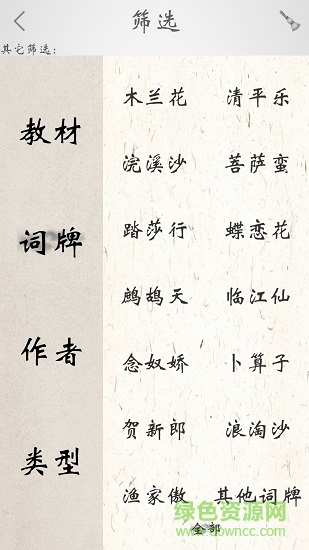 筛选
其它筛选：
教材
词牌
作者
类型
木兰花 清平乐
浣溪沙 菩萨蛮
踏莎行 蝶恋花
鹧鸪天 临江仙
念奴娇 卜算子
贺新郎 浪淘沙
渔家傲 其他词牌
全部
绿色资源网
www.downcc.com